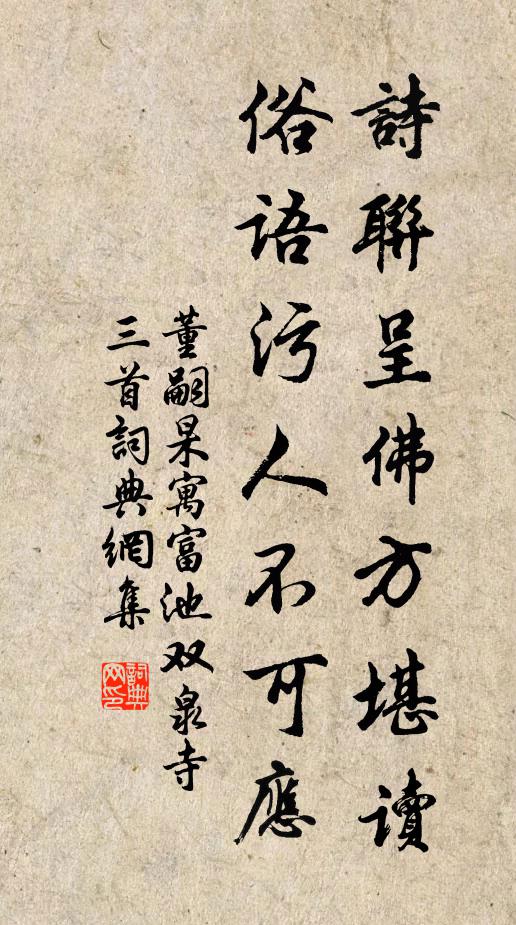 詩聯呈佛方堪讀
俗語污人不可應
董嗣杲寓富池双泉寺
三首詞典網集
詞典网印